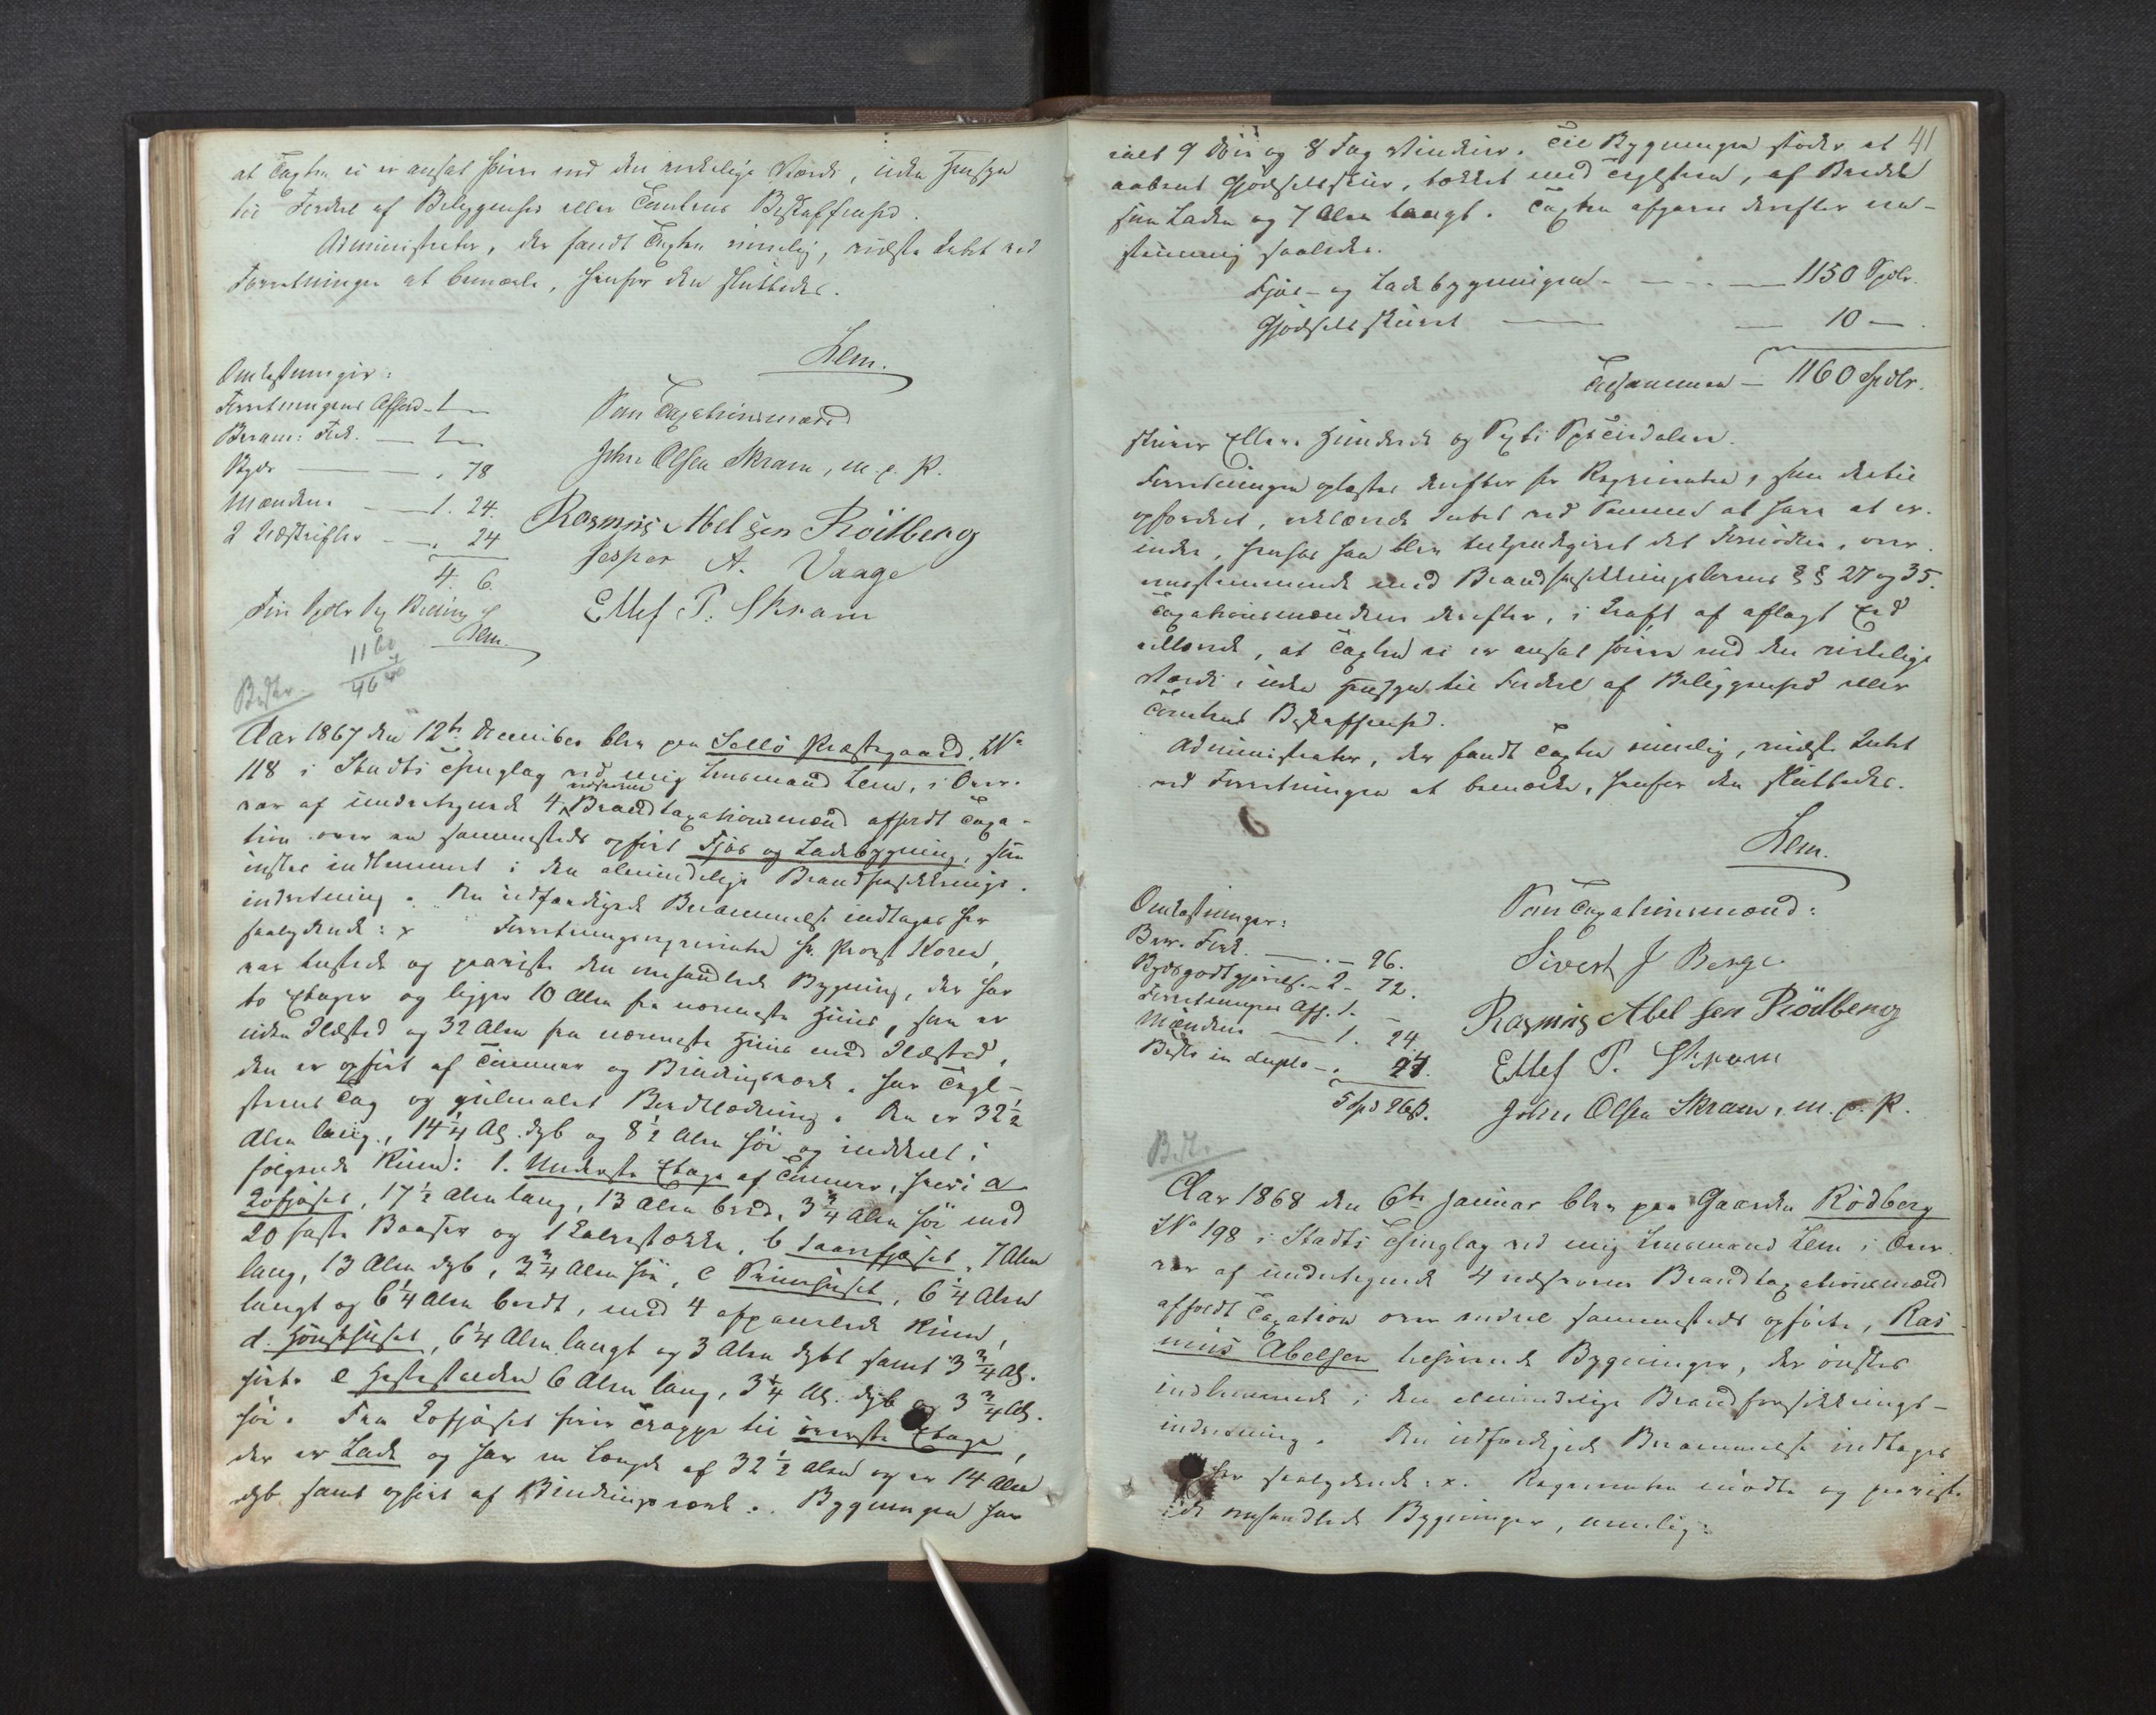 at Taxten ei er ansat høiere end den virkelige Værdi, uden Hensyn
til Fordeel af Beliggenhed eller Tomtens Beskaffenhed.
Administrator, der fandt Taxten rimelig, vidste Intet ved
Forretningen at bemærke, hvorfor den sluttedes.
Lem.
Omkostninger:
Forretningens Afhold - 1 -
Beram: Fork. - 1 -
Skyds - . 78
Mændene - 1. 24.
2 Udskrifter - . 24
4. 6.
Fire Spdlr Sex Skilling
Lem.
Som Taxationsmænd
John Olsen Skram, m. p. P.
Rasmus Abelsen Rödberg
Jesper A. Vaage
Ellef P. Skram
1160
46
Aar 1867 den 12te December blev paa Sellö Præstegaard, No
118 i Stadts Thinglag ved mig Lensmand Lem, i Over-
vær af undertegnede 4 edsvorne Brandtaxationsmænd afholdt Taxa-
tion over en sammesteds opført Fjøs og Ladebygning, som
ønskes indlemmet i den almindelige Brandforsikrings-
indretning. Den udfærdigede Berammelse indtages her
saalydende: x Forretningsrequirenten Hr. Provst Koren,
var tilstede og paaviste den omhandlede Bygning, der har
to Etager og ligger 10 Alen fra nærmeste Huus, som er
uden Ildsted og 32 Alen fra nærmeste Huus med Ildsted,
den er opført af Tømmer og Bindingsværk, har Tegl-
steens Tag og guulmalet Bordklædning. Den er 32½
Alen lang, 14¼ Al. dyb og 8½ Alen høi og inddeelt i
følgende Rum: 1. Underste Etage af Tømmer, hvori a
Kofjøset, 17½ Alen lang, 13 Alen bred, 3¾ Alen høi med
20 faste Baaser og 1 Kalvestække, b Saarfjøset, 7 Alen
lang, 13 Alen dyb, 3¾ Alen høi, c Sviinhuset, 6¼ Alen
langt og 6¼ Alen bredt, med 4 afpanelede Rum,
d. Hønsehuset, 6¼ Alen langt og 3 Alen dybt samt 3¾ Al.
høit. e Hestestalden 6 Alen lang, 3¼ Al. dyb og 3¾ Al.
høi. Fra Kofjøset fører Trappe til øverste Etage,
der er Lade og har en Længde af 32½ Alen og er 14 Alen
dyb samt opført af Bindingsværk. Bygningen har
41
ialt 9 Døre og 8 Fag Vinduer. Til Bygningen støder et
aabent Gjødselskuur, tækket med Teglsteen, af Bredde
som Laden og 7 Alen langt. Taxten afgaves derefter een-
stemmig saaledes.
Fjøs- og Ladebygningen - 1150 Spdlr.
Gjødselskuret - 10 -
Tilsammen - 1160 Spdlr.
skriver Elleve Hundrede og Sexti Speciedaler.
Forretningen oplæstes derefter for Requirenten, som dertil
opfordret, erklærede Intet ved Samme at have at er-
indre, hvorhos han blev tilkjendegivet det Fornødne, over-
eensstemmende med Brandforsikringslovens §§ 27 og 35.
Taxationsmændene derefter, i Kraft af aflagt Eed
erklærede, at Taxten ei er ansat høiere end den virkelige
Værdi, uden Hensyn til Fordeel af Beliggenhed eller
Tomtens Beskaffenhed.
Administrator, der fandt Taxten rimelig, vidste Intet
ved Forretningen at bemærke, hvorfor den sluttedes.
Lem.
Omkostninger:
Ber. Fork. - . - 96.
Skydsgodtgjørelse - 2 - 72.
Forretningens Afh. 1. -
Mændene - 1. 24.
Beskr. in duplo - . 24.
5 Spd 96 ß.
Som Taxationsmænd:
Sivert J Berge.
Rasmus Abelsen Rödberg
Ellef P. Skram
John Olsen Skram, m. p. P.
Aar 1868 den 6te Januar blev paa Gaarden Rödberg
No 198 i Stadts Thinglag ved mig Lensmand Lem i Over-
vær af undertegnede 4 edsvorne Brandtaxationsmænd
afholdt Taxation over endeel sammesteds opførte, Ras-
mus Abelsen tilhørende Bygninger, der ønskes
indlemmede i den almindelige Brandforsikrings-
indretning. Den udfærdigede Berammelse indtages
her saalydende: x. Requirenten mødte og paaviste
de omhandlede Bygninger, nemlig: